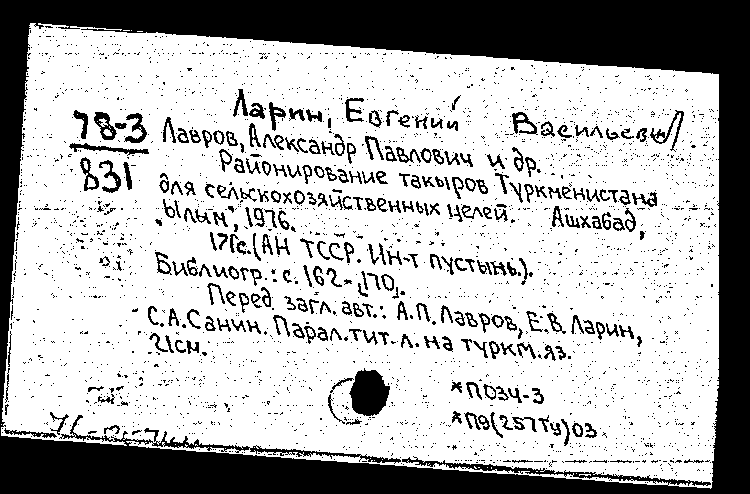 Ларин, Евгений Васильевич
78-3
831
Лавров, Александр Павлович и др.
Районирование такыров Туркменистана
для сельскохозяйственных целей. Ашхабад,
"Ылым", 1976.
171с. (АН ТССР. Ин-т пустынь.).
Библиогр.: с. 162-170.
Перед загл. авт.: А.П. Лавров, Е.В. Ларин,
С.А. Санин. Парал. тит. л. на туркм. яз.
21см.
*П034-3
*П9(257Ту)03